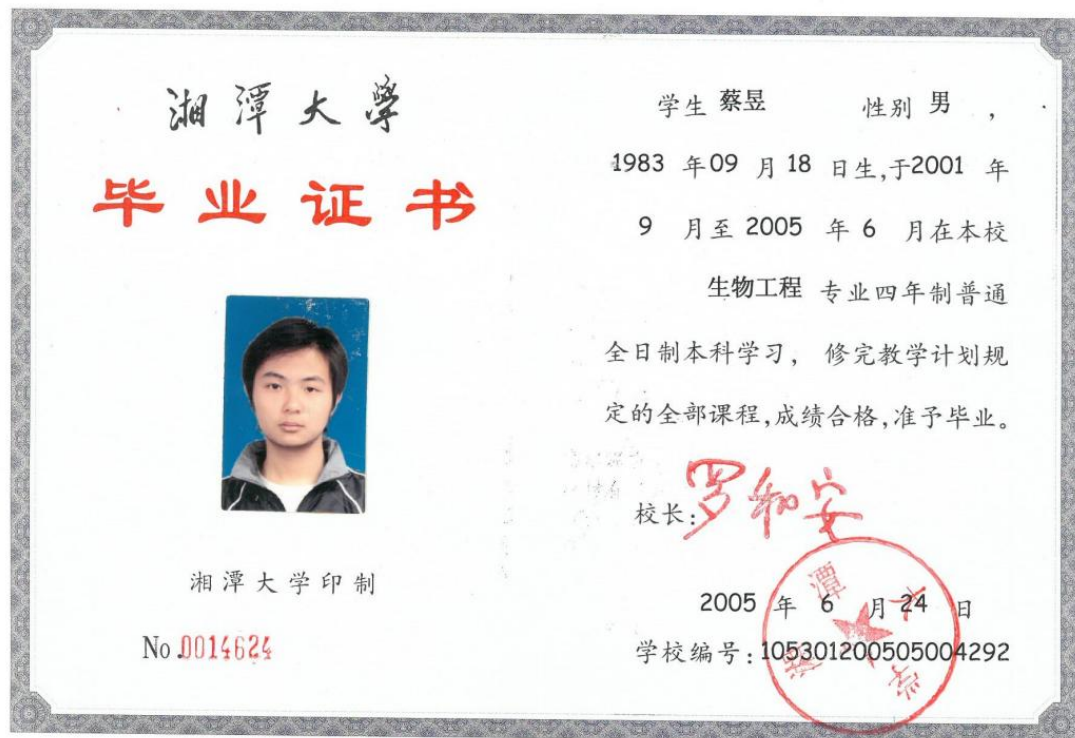 湘潭大學
毕业证书
湘潭大学印制
No.0014624
学生 蔡昱 性别 男 ，
1983 年 09 月 18 日生,于2001 年
9 月至 2005 年 6 月在本校
生物工程 专业四年制普通
全日制本科学习， 修完教学计划规
定的全部课程,成绩合格,准予毕业。
校长:罗和安
2005 年 6 月 24 日
学校编号:105301200505004292
湘潭大学